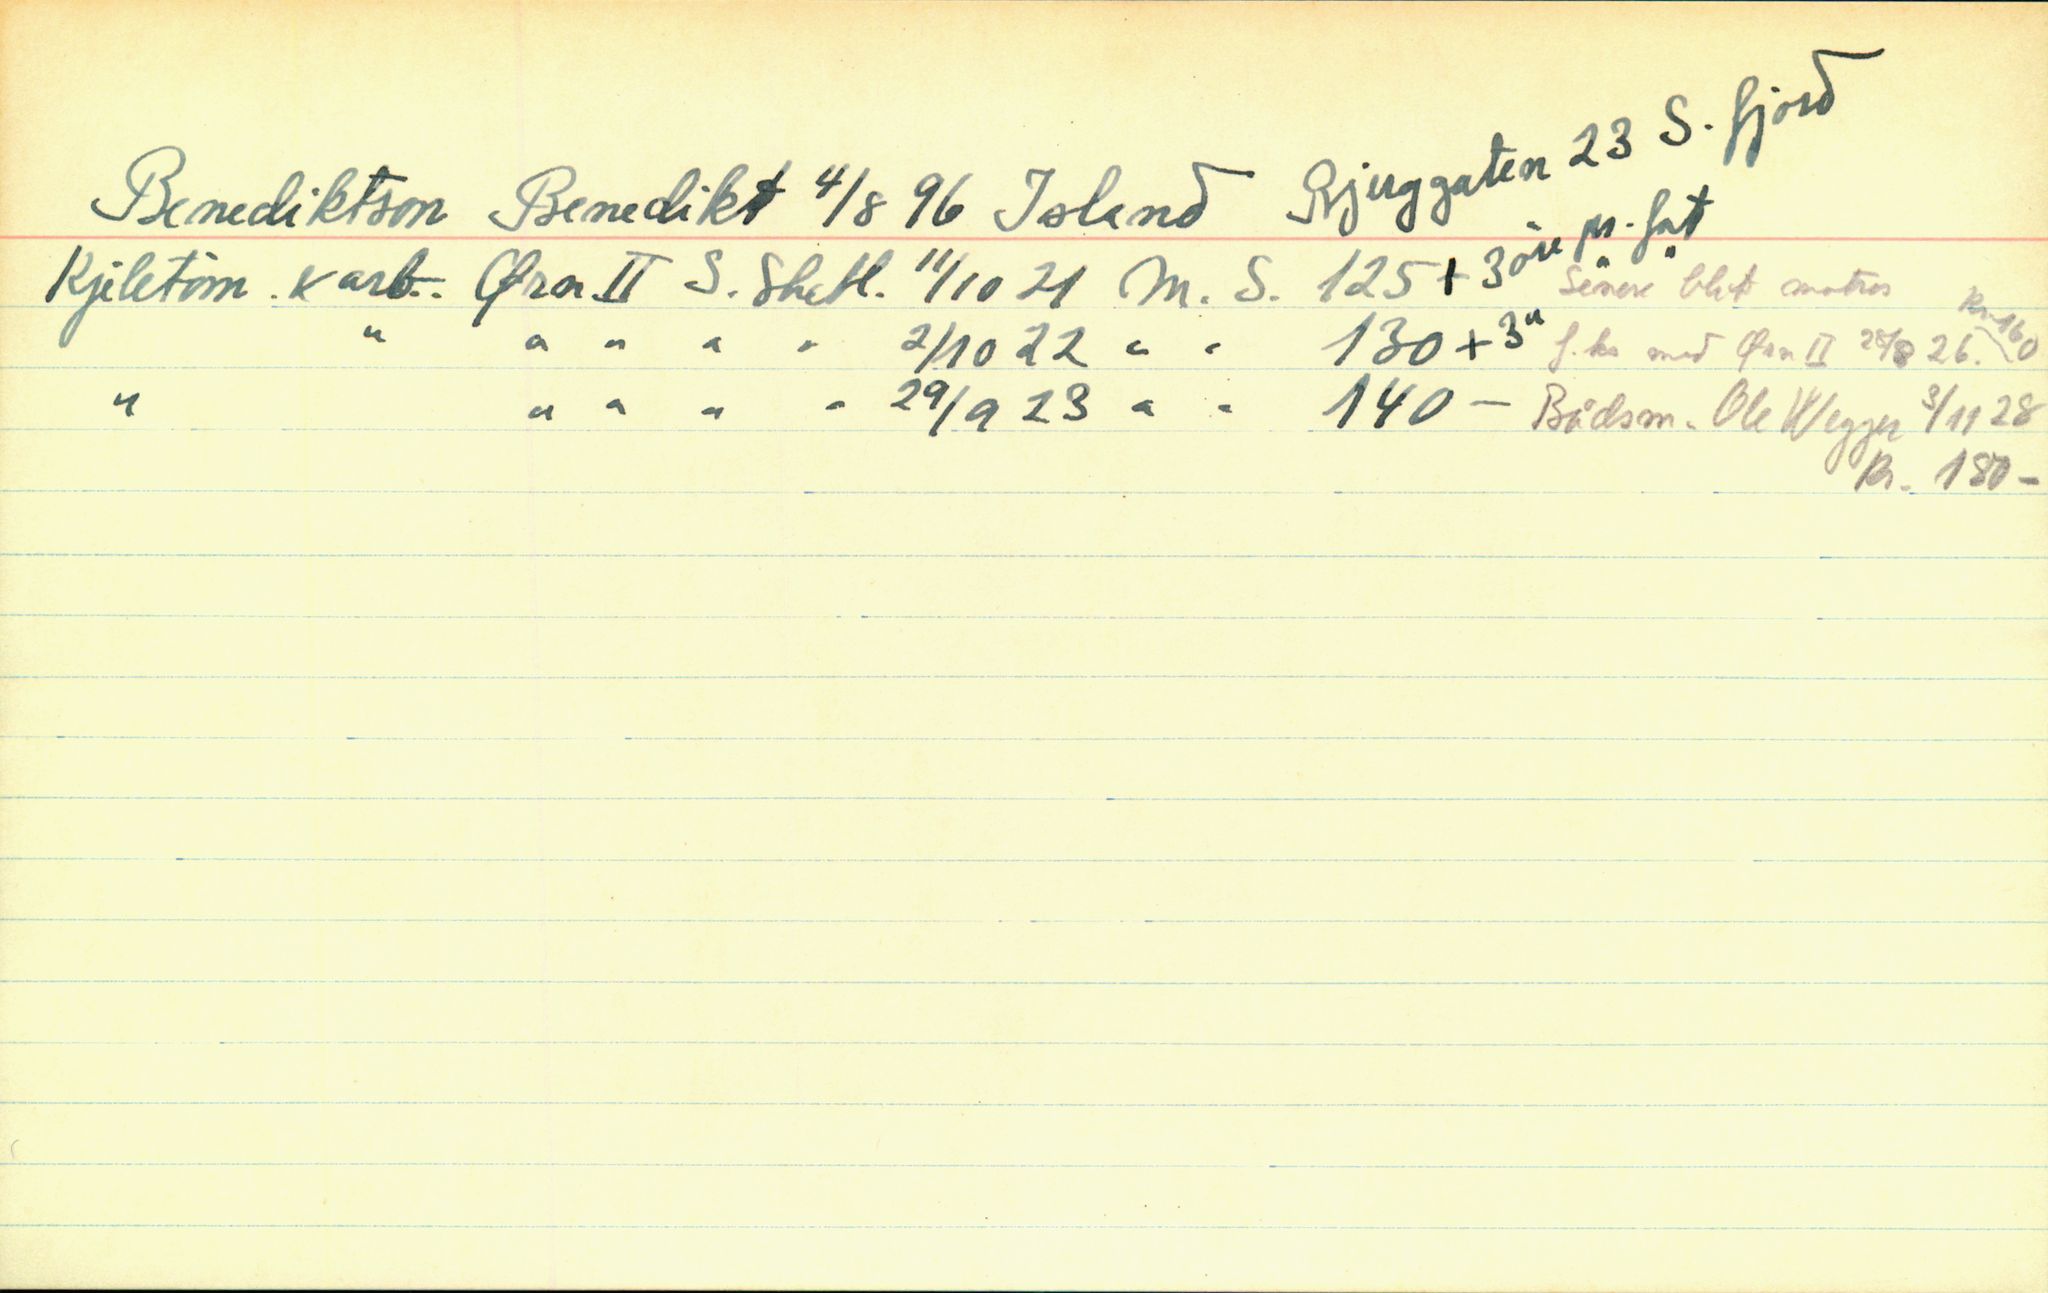 Benediktson Benedikt 4/8 96 Island Bjerggaten 23 S. fjord
Kjeletöm. Karb. Ørn II S. Shetl. 11/10 21 M. S. 125 + 3 öre pr. fat Senere blit matros
" " " " " 2/10 22 " " 130 + 3 " " " f. ks med Ørn II 28/8 26. Kr. 160
" " " " " 29/9 23 " " 140 — Bådsm. Ole Wegger 3/11 28
Kr. 180 –